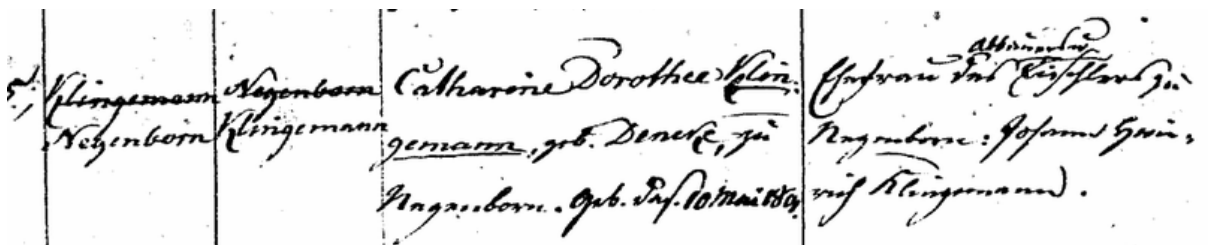 5,
Klingemann
Negenborn
Negenborn
Klingemann
Catharine Dorothee Klin-
gemann, geb. Denecke, zu
Negenborn. Geb. das. 10 Mai
Abbauers u
Ehefrau des Tischlers zu
Negenborn: Johann Hein-
rich Klingemann.